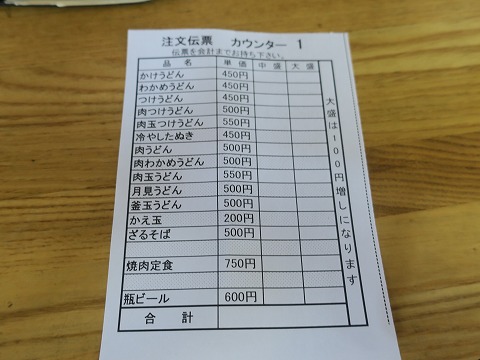 注文伝票 カウンター 1
伝票を会計までお持ち下さい。
品名 単価 中盛 大盛
かけうどん 450円
わかめうどん 450円
つけうどん 450円
肉つけうどん 500円
肉玉つけうどん 550円
冷やしたぬき 450円
肉うどん 500円
肉わかめうどん 500円
肉玉うどん 550円
月見うどん 500円
釜玉うどん 500円
かえ玉 200円
ざるそば 500円
焼肉定食 750円
瓶ビール 600円
合計
大盛は100円増しになります